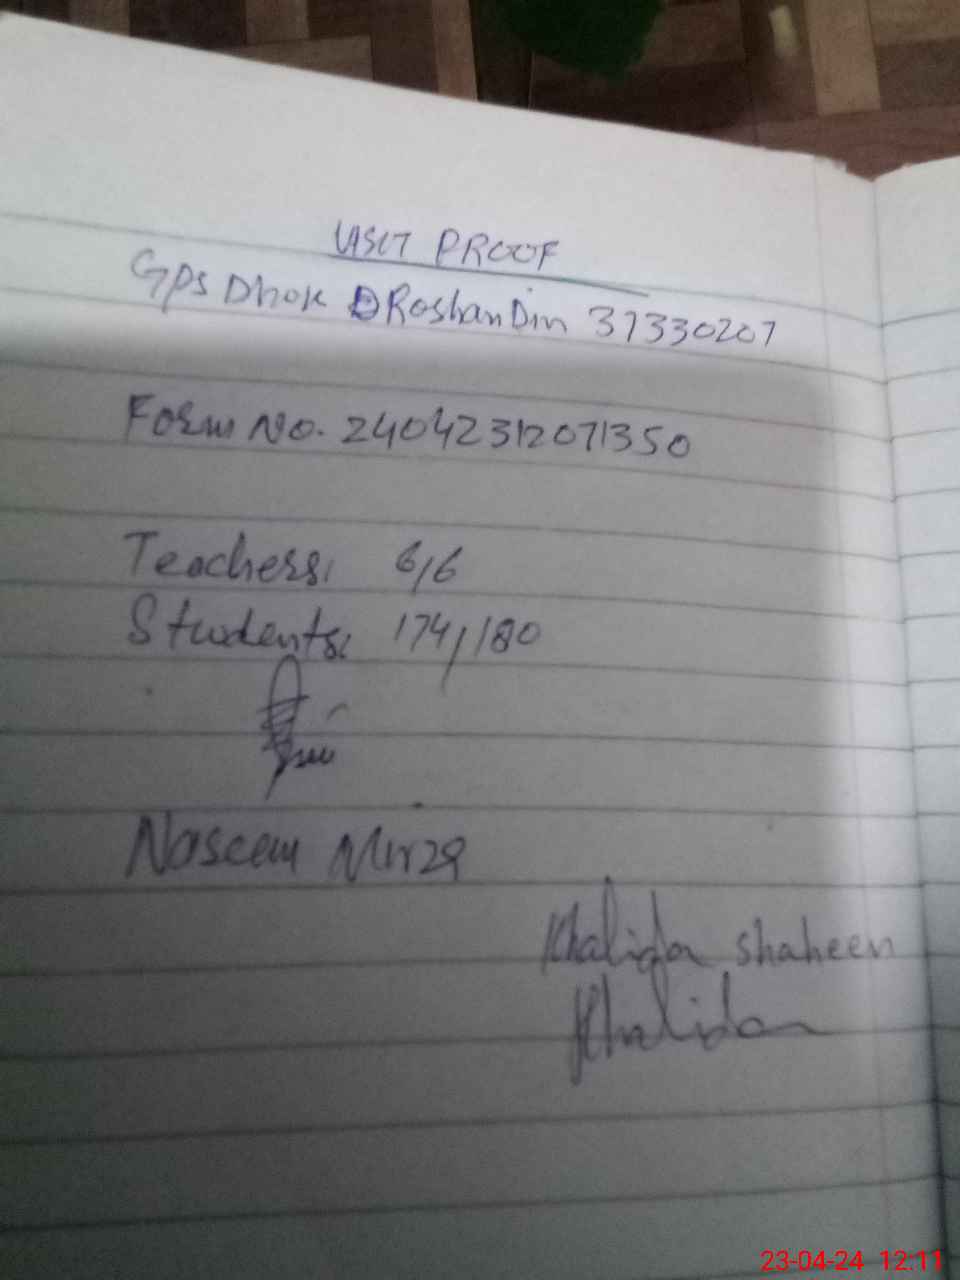 VISIT PROOF
GPS Dhok Roshan Din 37330207
Form No. 24042312071350
Teachers: 6/6
Students: 174/180
Naseem Mirza
Khalida shaheen
Khalida
23-04-24 12:11